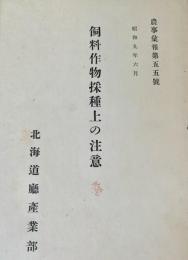 農事彙報第五五號
昭和九年六月
飼料作物採種上の注意
北海道廳產業部